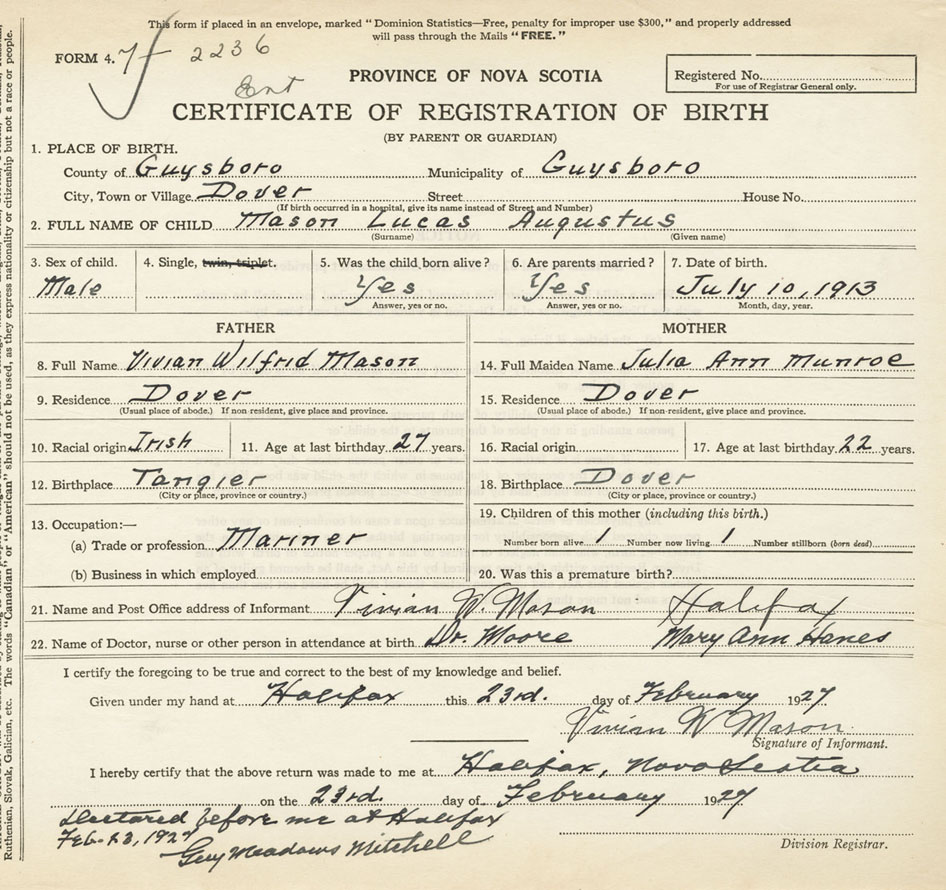 This form if placed in an envelope, marked "Dominion Statistics—Free, penalty for improper use $300," and properly addressed
will pass through the Mails "FREE."
FORM 4.
2236
Ent
PROVINCE OF NOVA SCOTIA
Registered No.
For use of Registrar General only.
CERTIFICATE OF REGISTRATION OF BIRTH
(BY PARENT OR GUARDIAN)
1. PLACE OF BIRTH.
County of Guysboro Municipality of Guysboro
City, Town or Village Dover Street House No.
(If birth occurred in a hospital, give its name instead of Street and Number)
2. FULL NAME OF CHILD Mason Lucas Augustus
(Surname) (Given name)
3. Sex of child. 4. Single, twin, triplet. 5. Was the child born alive? 6. Are parents married? 7. Date of birth.
Male Yes Yes July 10, 1913
Answer, yes or no. Answer, yes or no. Month, day, year.
FATHER MOTHER
8. Full Name Vivian Wilfrid Mason 14. Full Maiden Name Julia Ann Munroe
9. Residence Dover 15. Residence Dover
(Usual place of abode.) If non-resident, give place and province. (Usual place of abode.) If non-resident, give place and province.
10. Racial origin Irish 11. Age at last birthday 27 years. 16. Racial origin 17. Age at last birthday 22 years.
12. Birthplace Tangier 18. Birthplace Dover
(City or place, province or country.) (City or place, province or country.)
13. Occupation:— 19. Children of this mother (including this birth.)
(a) Trade or profession Mariner Number born alive 1 Number now living 1 Number stillborn (born dead)
(b) Business in which employed 20. Was this a premature birth?
21. Name and Post Office address of Informant Vivian W. Mason Halifax
22. Name of Doctor, nurse or other person in attendance at birth Dr. Moore Mary Ann Hanes
I certify the foregoing to be true and correct to the best of my knowledge and belief.
Given under my hand at Halifax this 23rd. day of February 1927
Vivian W Mason
Signature of Informant.
I hereby certify that the above return was made to me at Halifax, Nova Scotia
on the 23rd. day of February 1927
Declared before me at Halifax
Feb. 23, 1927
Guy Meadows Mitchell
Division Registrar.
Ruthenian, Slovak, Galician, etc. The words "Canadian" or "American" should not be used, as they express nationality or citizenship but not a race or people.